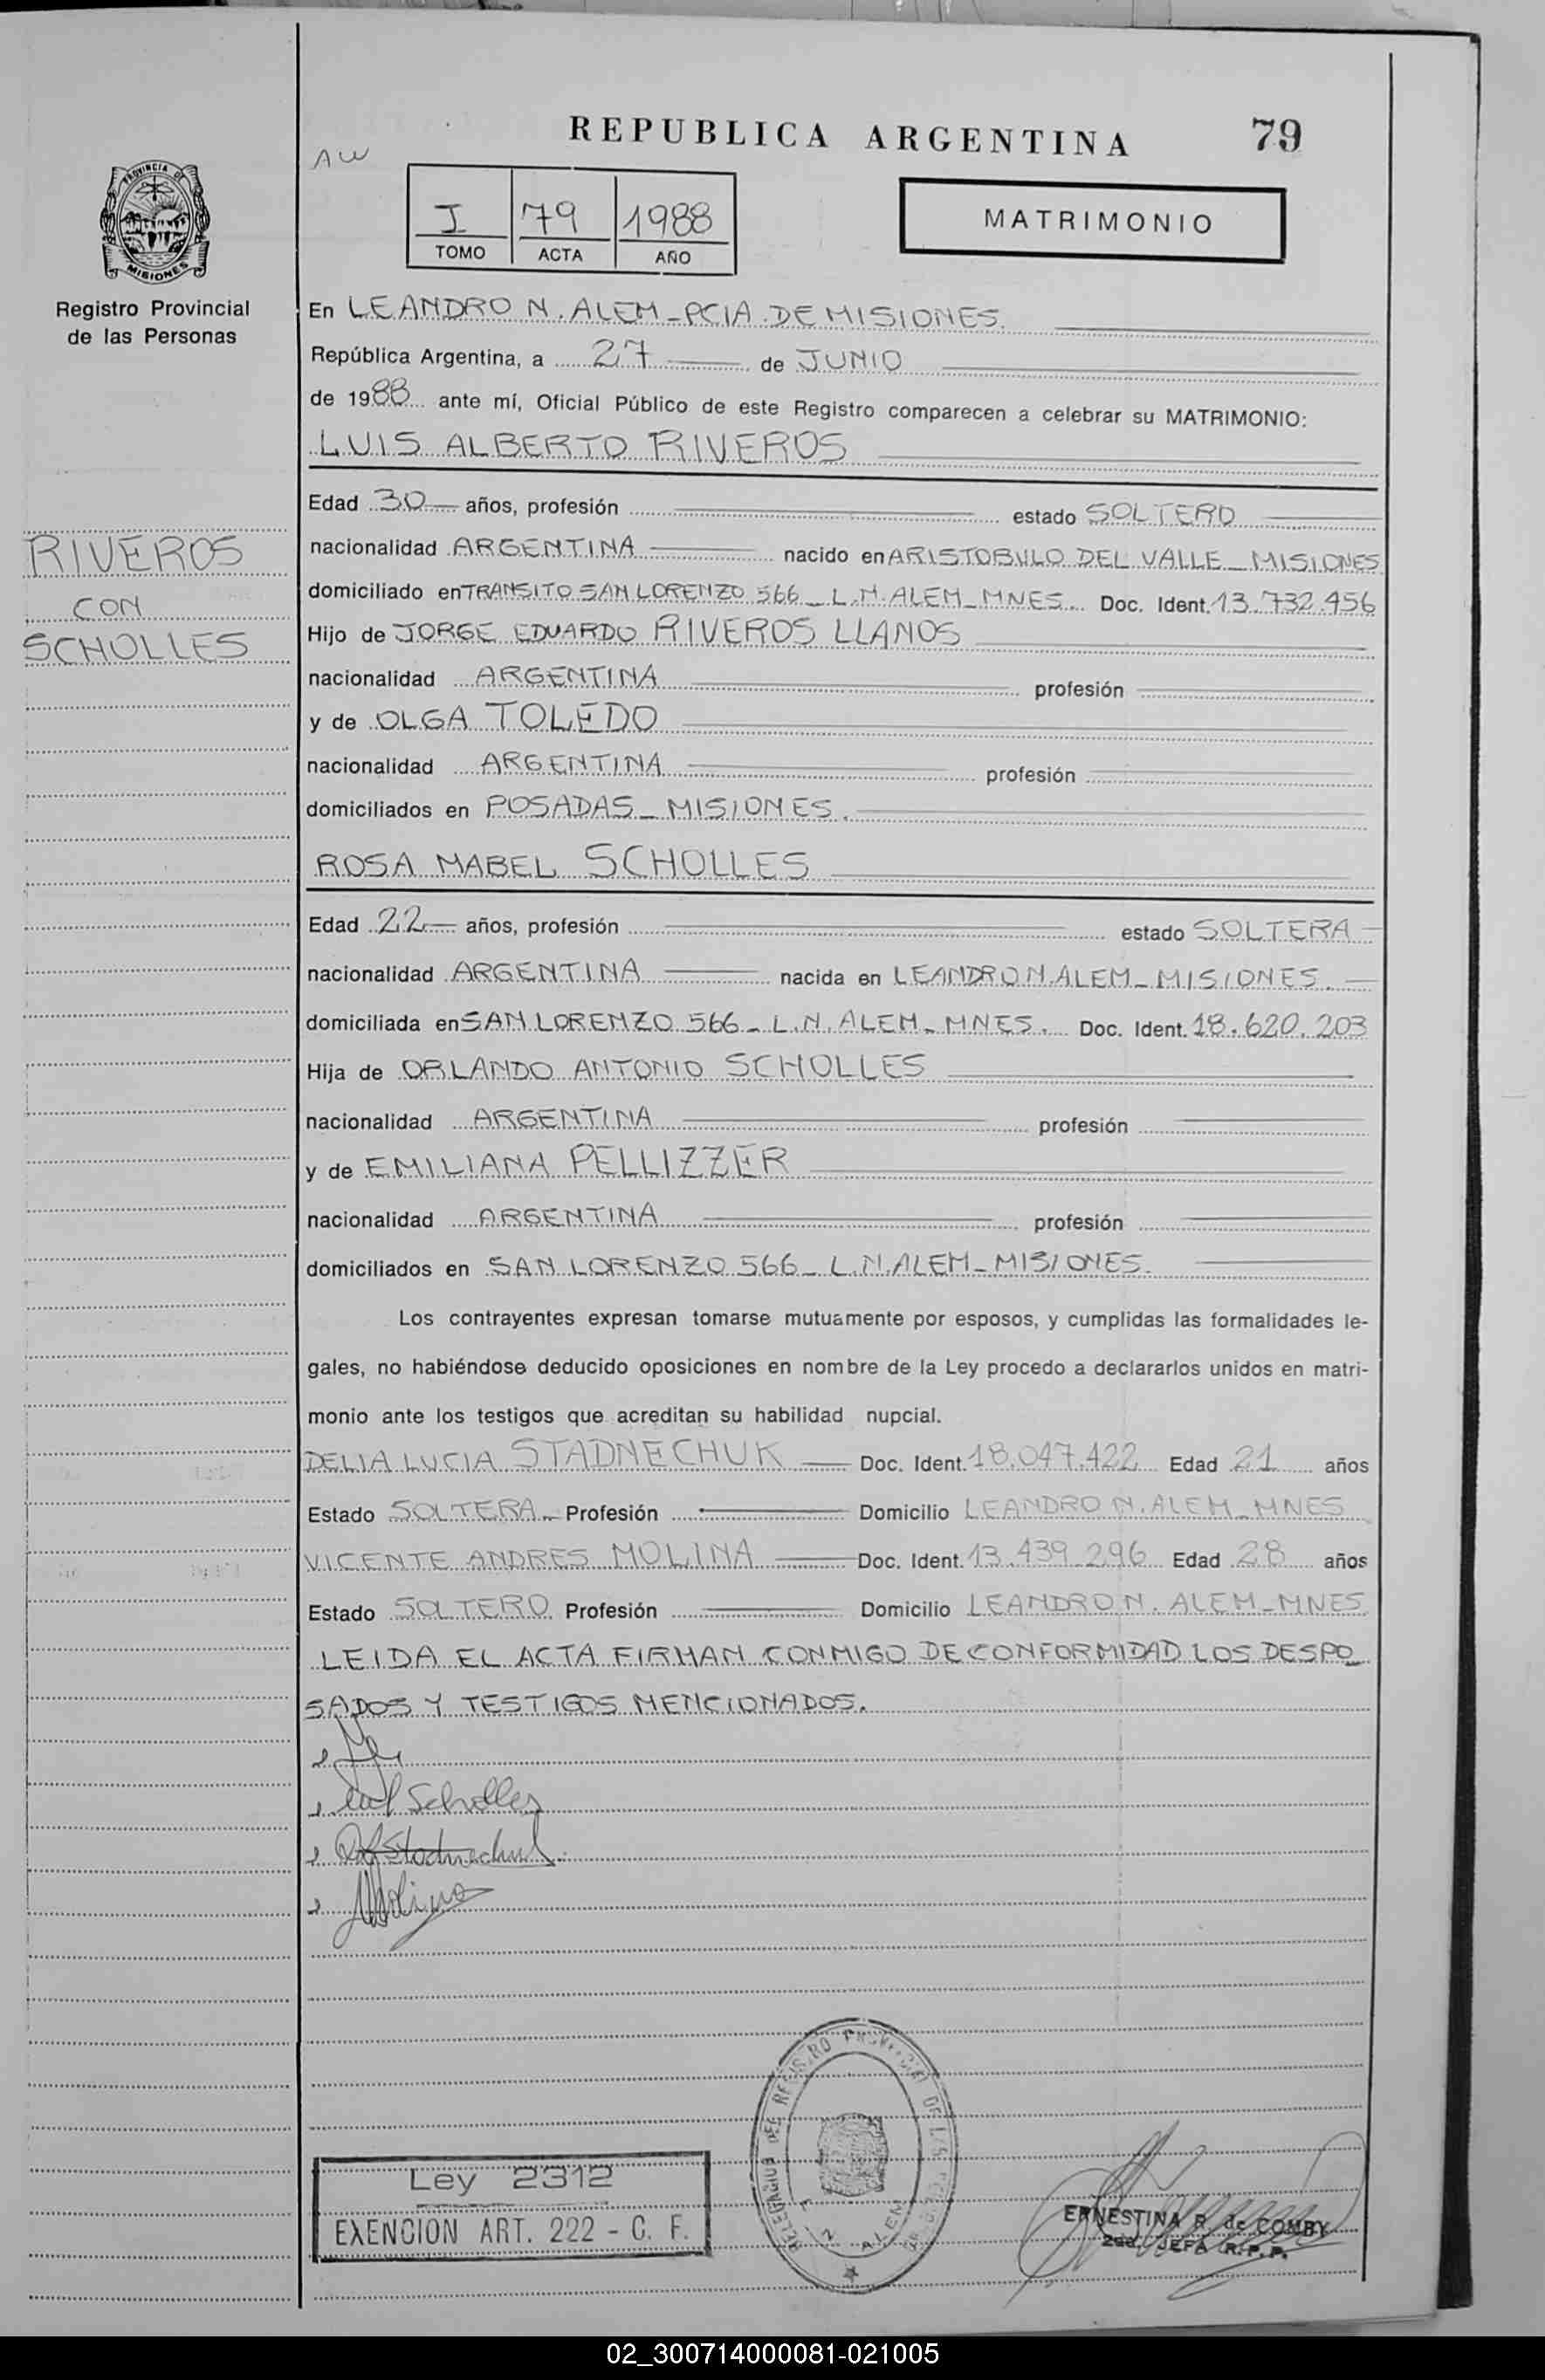 REPUBLICA ARGENTINA
79
AW
PROVINCIA DE
MISIONES
Registro Provincial
de las Personas
I 79 1988
TOMO ACTA AÑO
MATRIMONIO
RIVEROS
CON
SCHOLLES
En LEANDRO N. ALEM - PCIA. DE MISIONES.
República Argentina, a 27 de JUNIO
de 1988 ante mí, Oficial Público de este Registro comparecen a celebrar su MATRIMONIO:
LUIS ALBERTO RIVEROS
Edad 30 años, profesión estado SOLTERO
nacionalidad ARGENTINA nacido en ARISTOBULO DEL VALLE - MISIONES
domiciliado en TRANSITO SAN LORENZO 566 - L.N. ALEM - MNES. Doc. Ident. 13.732.456
Hijo de JORGE EDUARDO RIVEROS LLANOS
nacionalidad ARGENTINA profesión
y de OLGA TOLEDO
nacionalidad ARGENTINA profesión
domiciliados en POSADAS - MISIONES.
ROSA MABEL SCHOLLES
Edad 22 años, profesión estado SOLTERA
nacionalidad ARGENTINA nacida en LEANDRO N. ALEM - MISIONES.
domiciliada en SAN LORENZO 566 - L.N. ALEM - MNES. Doc. Ident. 18.620.203
Hija de ORLANDO ANTONIO SCHOLLES
nacionalidad ARGENTINA profesión
y de EMILIANA PELLIZZER
nacionalidad ARGENTINA profesión
domiciliados en SAN LORENZO 566 - L.N. ALEM - MISIONES.
Los contrayentes expresan tomarse mutuamente por esposos, y cumplidas las formalidades le-
gales, no habiéndose deducido oposiciones en nombre de la Ley procedo a declararlos unidos en matri-
monio ante los testigos que acreditan su habilidad nupcial.
DELIA LUCIA STADNECHUK Doc. Ident. 18.047.422 Edad 21 años
Estado SOLTERA Profesión Domicilio LEANDRO N. ALEM - MNES
VICENTE ANDRES MOLINA Doc. Ident. 13.439.296 Edad 28 años
Estado SOLTERO Profesión Domicilio LEANDRO N. ALEM - MNES
LEIDA EL ACTA FIRMAN CONMIGO DE CONFORMIDAD LOS DESPO_
SADOS Y TESTIGOS MENCIONADOS.
Scholles
Stadnechuk
Molina
Ley 2312
EXENCION ART. 222 - C. F.
ERNESTINA R. de COMBY
2da. JEFA R.P.P.
02_300714000081-021005